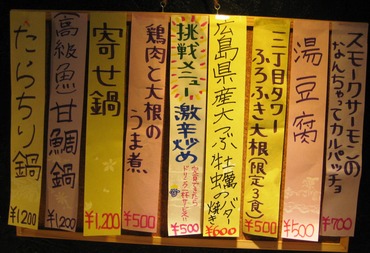 スモークサーモンの
なんちゃってカルパッチョ
¥700
湯豆腐
¥500
二丁目タワー
ふろふき大根(限定3食)
¥500
広島県産大つぶ牡蠣のバター焼き
¥600
挑戦メニュー
激辛炒め
¥500
鶏肉と大根の
うま煮
¥500
寄せ鍋
¥1,200
高級魚甘鯛鍋
¥1,200
たらちり鍋
¥1200